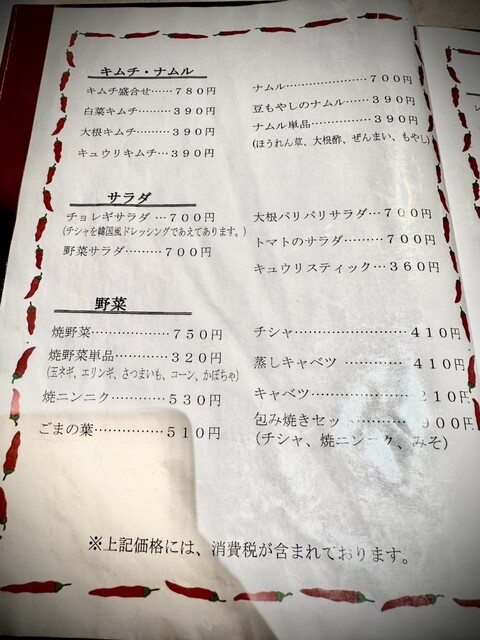 キムチ・ナムル
キムチ盛合せ……７８０円
白菜キムチ………３９０円
大根キムチ………３９０円
キュウリキムチ…３９０円
ナムル…………………７００円
豆もやしのナムル……３９０円
ナムル単品……………３９０円
(ほうれん草、大根酢、ぜんまい、もやし)
サラダ
チョレギサラダ…７００円
(チシャを韓国風ドレッシングであえてあります。)
野菜サラダ………７００円
大根パリパリサラダ…７００円
トマトのサラダ………７００円
キュウリスティック…３６０円
野菜
焼野菜………………７５０円
焼野菜単品…………３２０円
(玉ネギ、エリンギ、さつまいも、コーン、かぼちゃ)
焼ニンニク…………５３０円
ごまの葉……………５１０円
チシャ…………………４１０円
蒸しキャベツ…………４１０円
キャベツ………………２１０円
包み焼きセット………９００円
(チシャ、焼ニンニク、みそ)
※上記価格には、消費税が含まれております。